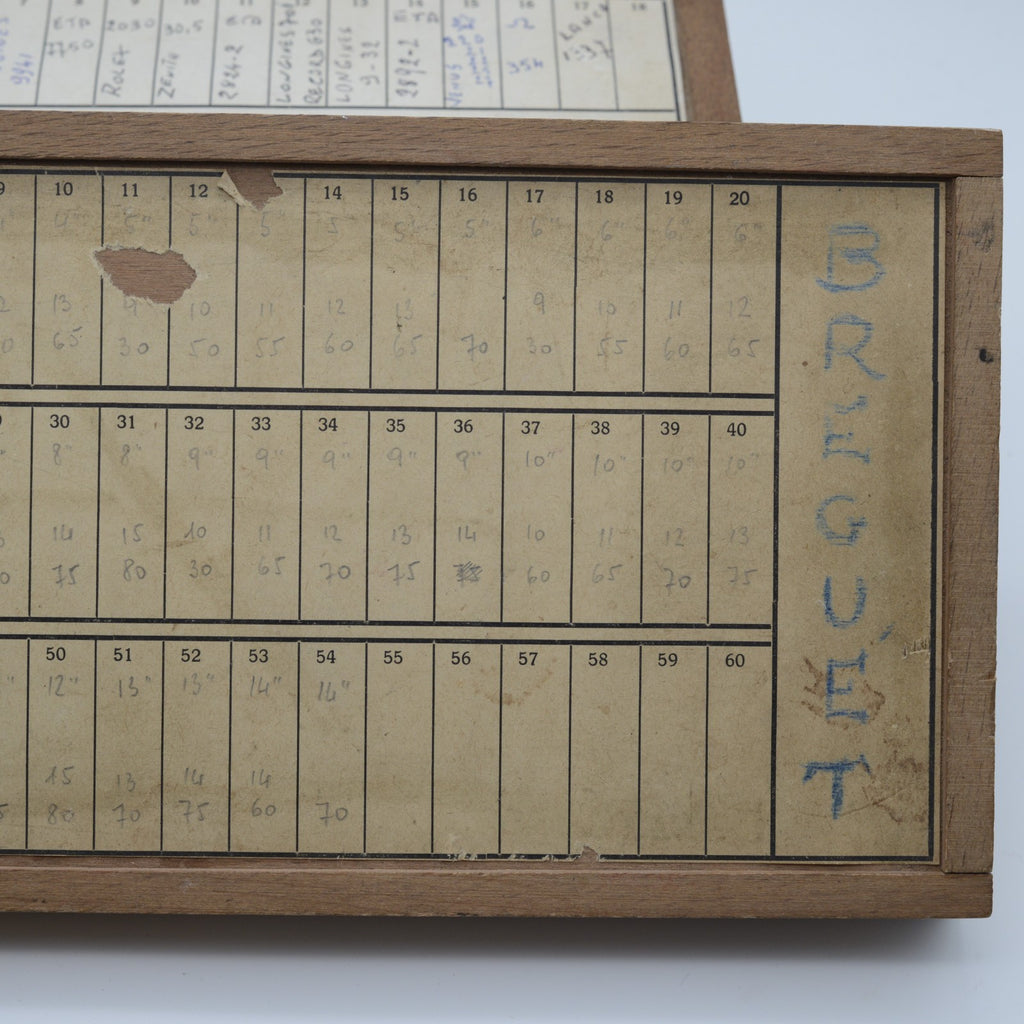 ETA 2030 30,5 2824-2 LONGINES LONGINES 2892-2 VENUS 16 17 18
7750 ROLEX ZENITH RECORD 630 9.32
9 10 11 12 14 15 16 17 18 19 20
5" 5 5" 6" 6" 6" 6"
13 9 10 11 12 13 9 10 11 12
65 30 50 55 60 65 70 30 55 60 65
30 31 32 33 34 35 36 37 38 39 40
8" 8" 9" 9" 9" 9" 9" 10" 10" 10" 10"
14 15 10 11 12 13 14 10 11 12 13
75 80 30 65 70 75 60 65 70 75
50 51 52 53 54 55 56 57 58 59 60
12" 13" 13" 14" 14"
15 13 14 14
80 70 75 60 70
BREGUET